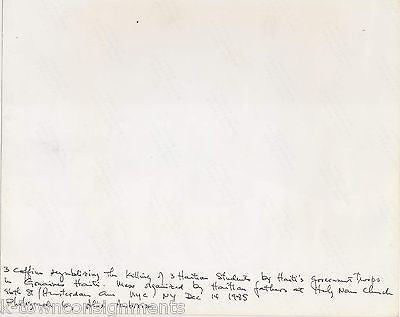 3 Coffins symbolizing The Killing of 3 Haitian Students by Haiti's Government Troops
in Gonaives Haiti. Mass organized by Haitian fathers at Holy Name Church
96th St / Amsterdam Ave NYC / NY Dec 14 1985
Photograph by
k-townconsignments